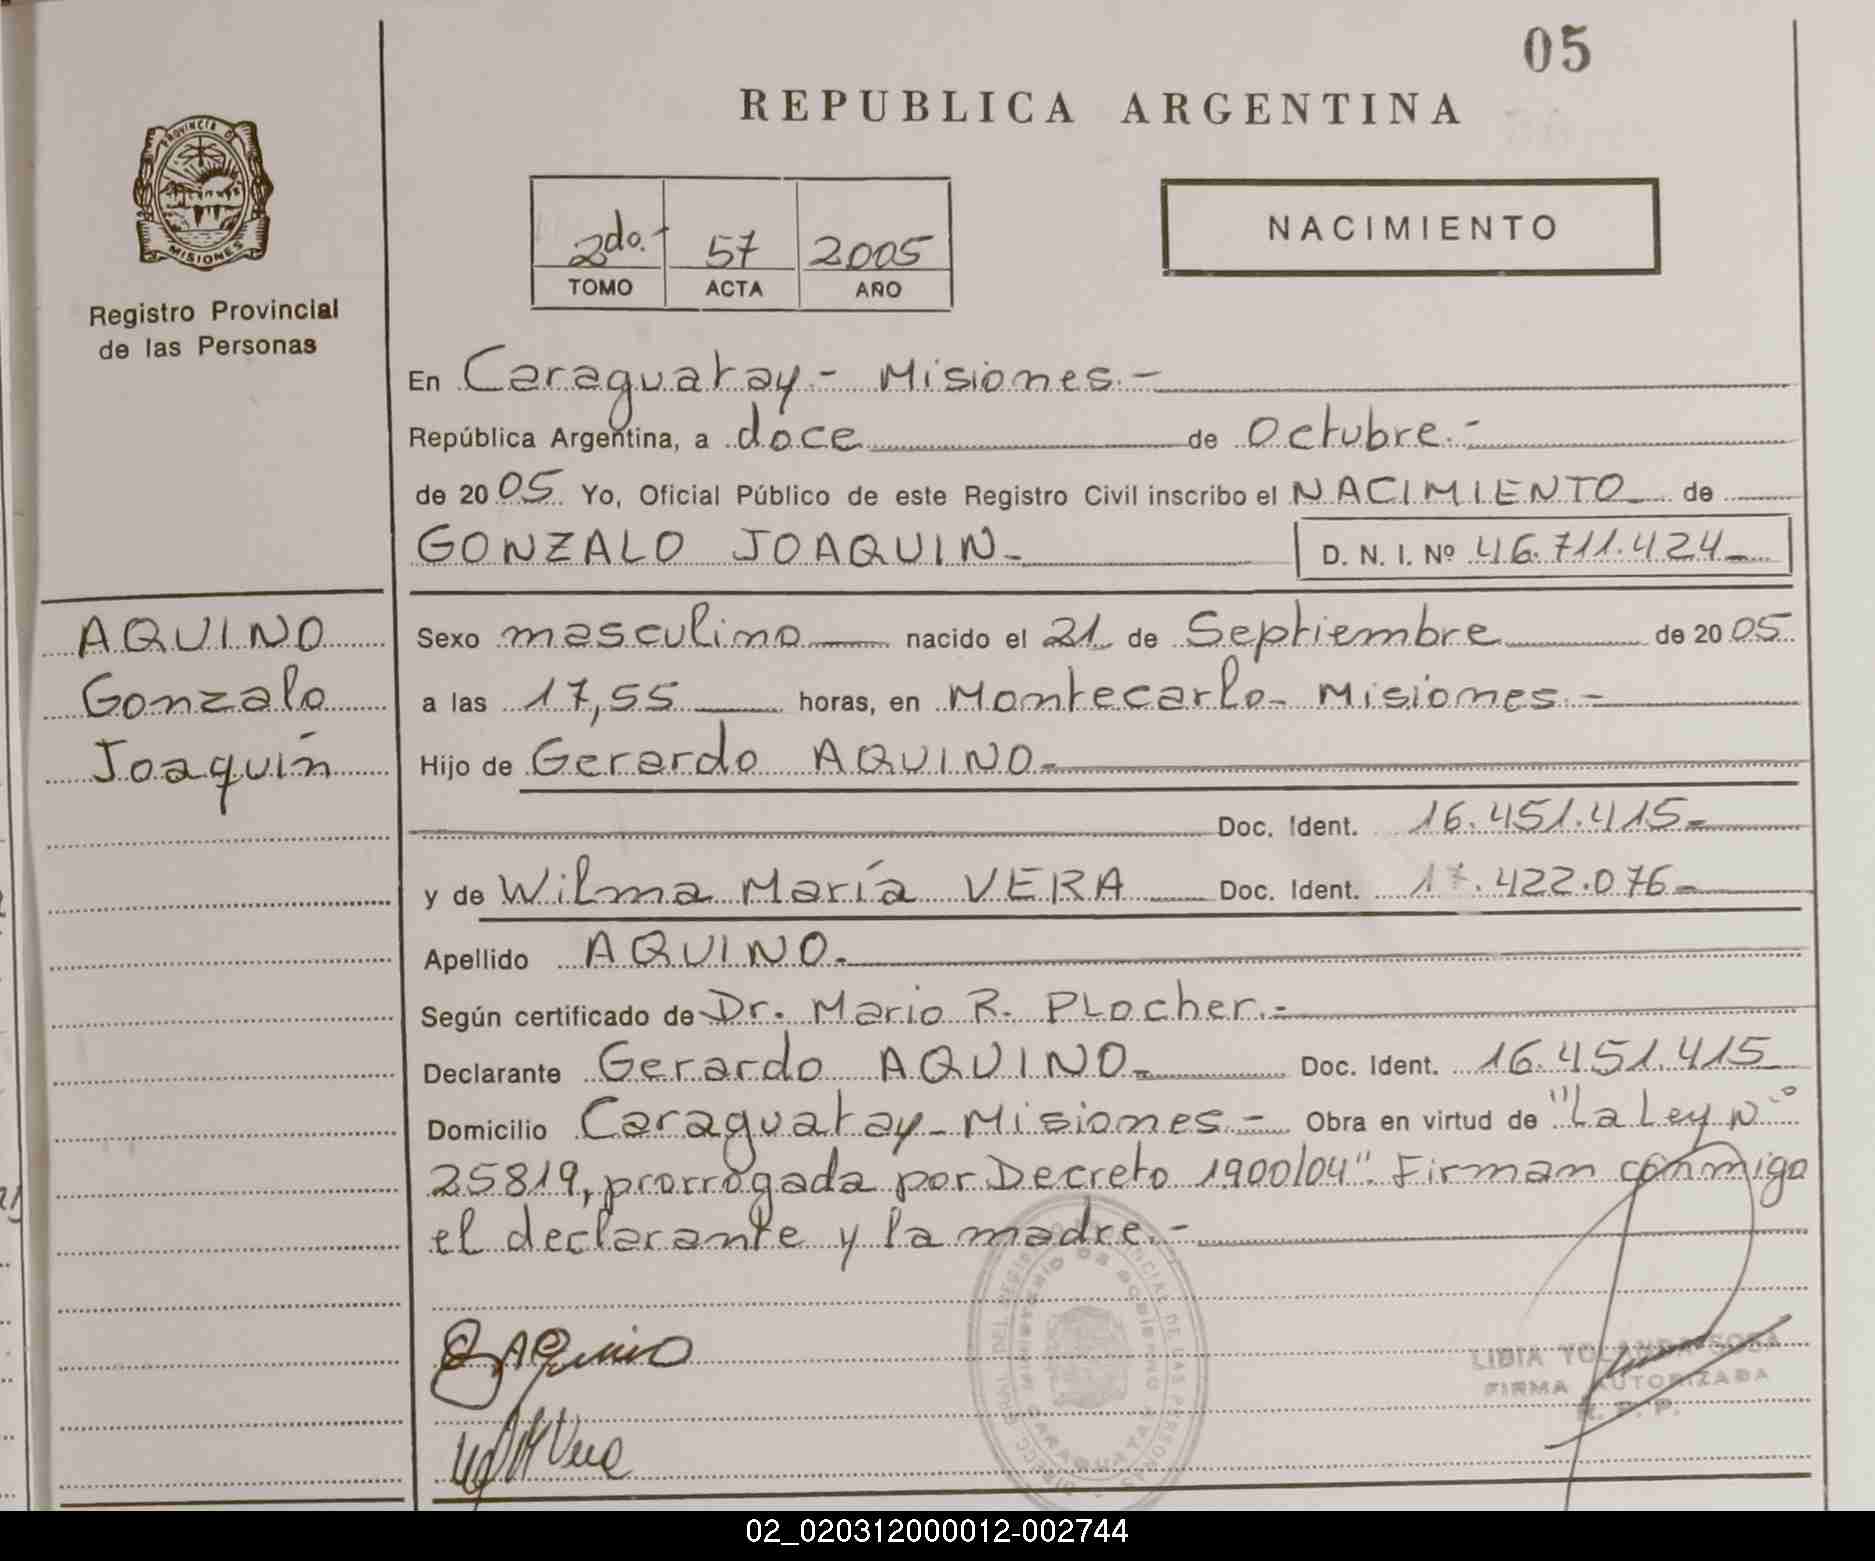 05
REPUBLICA ARGENTINA
PROVINCIA DE
MISIONES
Registro Provincial
de las Personas
2do.- 57 2005
TOMO ACTA AÑO
NACIMIENTO
En Caraguatay.- Misiones.-
República Argentina, a doce de Octubre.-
de 2005. Yo, Oficial Público de este Registro Civil inscribo el NACIMIENTO de
GONZALO JOAQUIN.- D. N. I. Nº 46.711.424-
AQUINO
Gonzalo
Joaquín
Sexo masculino nacido el 21 de Septiembre de 2005
a las 17,55 horas, en Montecarlo- Misiones.-
Hijo de Gerardo AQUINO.-
Doc. Ident. 16.451.415-
y de Wilma María VERA Doc. Ident. 17.422.076-
Apellido AQUINO.
Según certificado de Dr. Mario R. PLocher.-
Declarante Gerardo AQUINO- Doc. Ident. 16.451.415
Domicilio Caraguatay- Misiones.- Obra en virtud de "La Ley Nº
25819, prorrogada por Decreto 1900/04". Firman conmigo
el declarante y la madre.-
LIDIA YOLANDA SOSA
FIRMA AUTORIZADA
R. P. P.
02_020312000012-002744